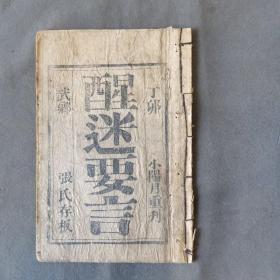 丁卯 小陽月重刊
醒迷要言
武鄉 張氏存板